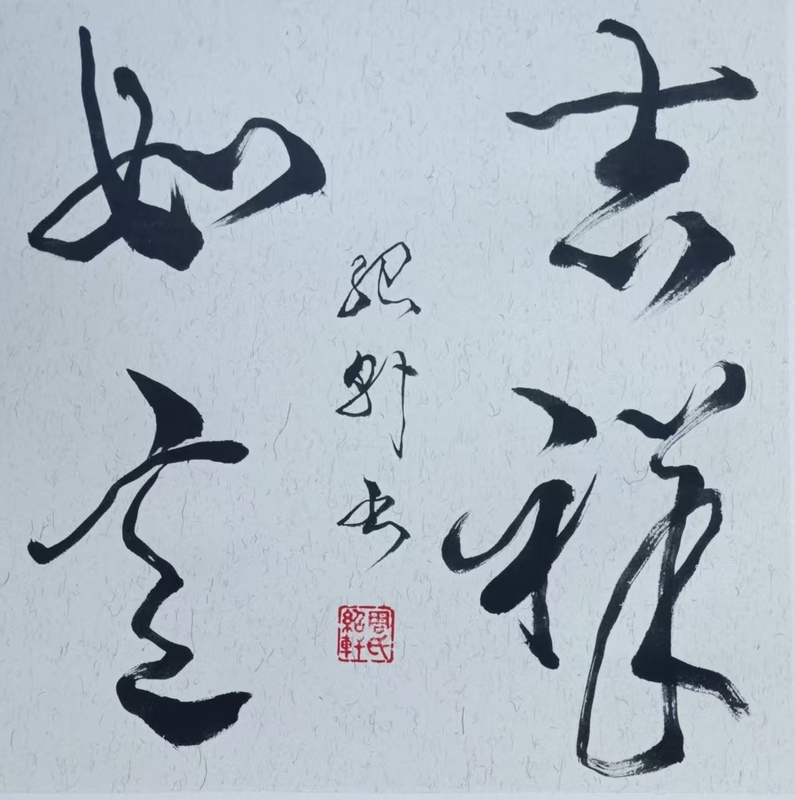 吉祥
如意
紹軒书
周氏
紹軒